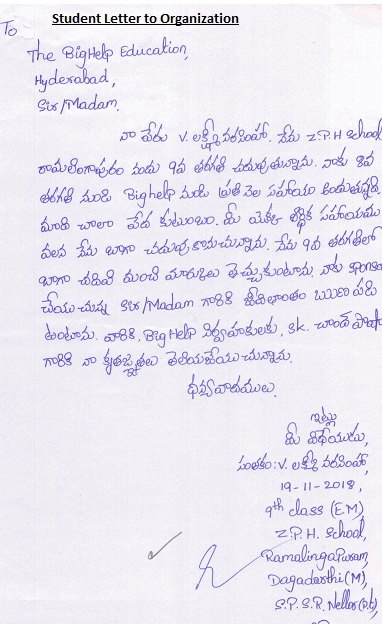 Student Letter to Organization
To
The BigHelp Education,
Hyderabad,
Sir/Madam.
నా పేరు V. లక్ష్మీ నరసింహా. నేను Z.P.H School
రామలింగాపురం నందు 9వ తరగతి చదువుతున్నాను. నాకు 8వ
తరగతి నుండి Bighelp నుండి ప్రతి నెల సహాయం అందుతున్నది.
మాది చాలా పేద కుటుంబం. మీ యొక్క ఆర్థిక సహాయము
వలన నేను బాగా చదువు కొనుచున్నాను. నేను 9వ తరగతిలో
బాగా చదివి మంచి మార్కులు తెచ్చుకుంటాను. నాకు sponsor
చేయు చున్న Sir/Madam గారికి జీవితాంతం ఋణ పడి
ఉంటాను. వారికి, BigHelp నిర్వాహకులకు, Sk. చాంద్
గారికి నా కృతజ్ఞతలు తెలియజేయు చున్నాను.
ధన్యవాదములు.
ఇట్లు
మీ విధేయుడు,
సంతకం: V. లక్ష్మీ నరసింహా,
19-11-2018,
9th class (E.M),
Z.P.H. School,
Ramalingapuram,
Dagadarthi(M),
S.P.S.R. Nellor(D.t)